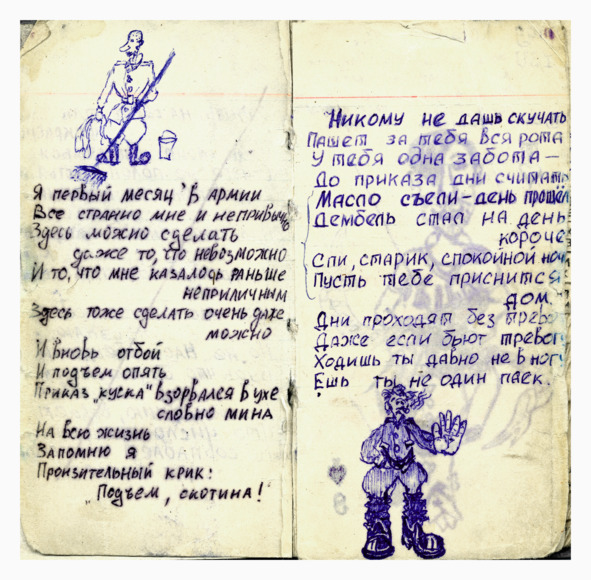 Я первый месяц в армии
Все странно мне и непривычно
Здесь можно сделать
даже то, что невозможно
И то, что мне казалось раньше
неприличным
Здесь тоже сделать очень даже
можно
И вновь отбой
И подъем опять
Приказ „куска" взорвался в ухе
словно мина
На всю жизнь
Запомню я
Пронзительный крик:
„Подъем, скотина!
Никому не дашь скучать
Пашет за тебя вся рота
У тебя одна забота —
До приказа дни считать
Масло съели - день прошёл
Дембель стал на день
короче
Спи, старик, спокойной ноч
Пусть тебе приснится
дом.
Дни проходят без тревог
Даже если бьют тревог
Ходишь ты давно не в ног
Ешь ты не один паек.